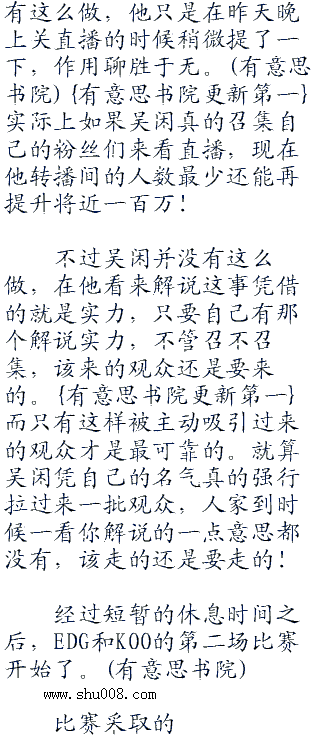 有这么做，他只是在昨天晚
上关直播的时候稍微提了一
下，作用聊胜于无。(有意思
书院) {有意思书院更新第一}
实际上如果吴闲真的召集自
己的粉丝们来看直播，现在
他转播间的人数最少还能再
提升将近一百万！
不过吴闲并没有这么
做，在他看来解说这事凭借
的就是实力，只要自己有那
个解说实力，不管召不召
集，该来的观众还是要来
的。{有意思书院更新第一}
而只有这样被主动吸引过来
的观众才是最可靠的。就算
吴闲凭自己的名气真的强行
拉过来一批观众，人家到时
候一看你解说的一点意思都
没有，该走的还是要走的！
经过短暂的休息时间之
后，EDG和KOO的第二场比赛
开始了。(有意思书院)
www.shu008.com
比赛采取的